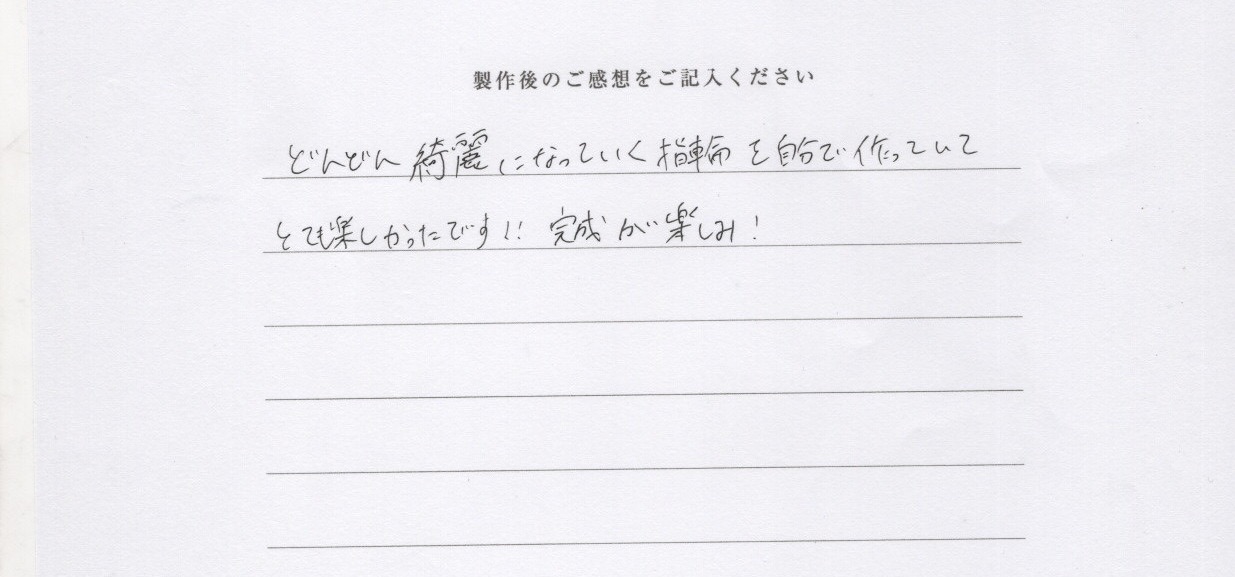 製作後のご感想をご記入ください
どんどん綺麗になっていく指輪を自分で作っていて
とても楽しかったです!! 完成が楽しみ!